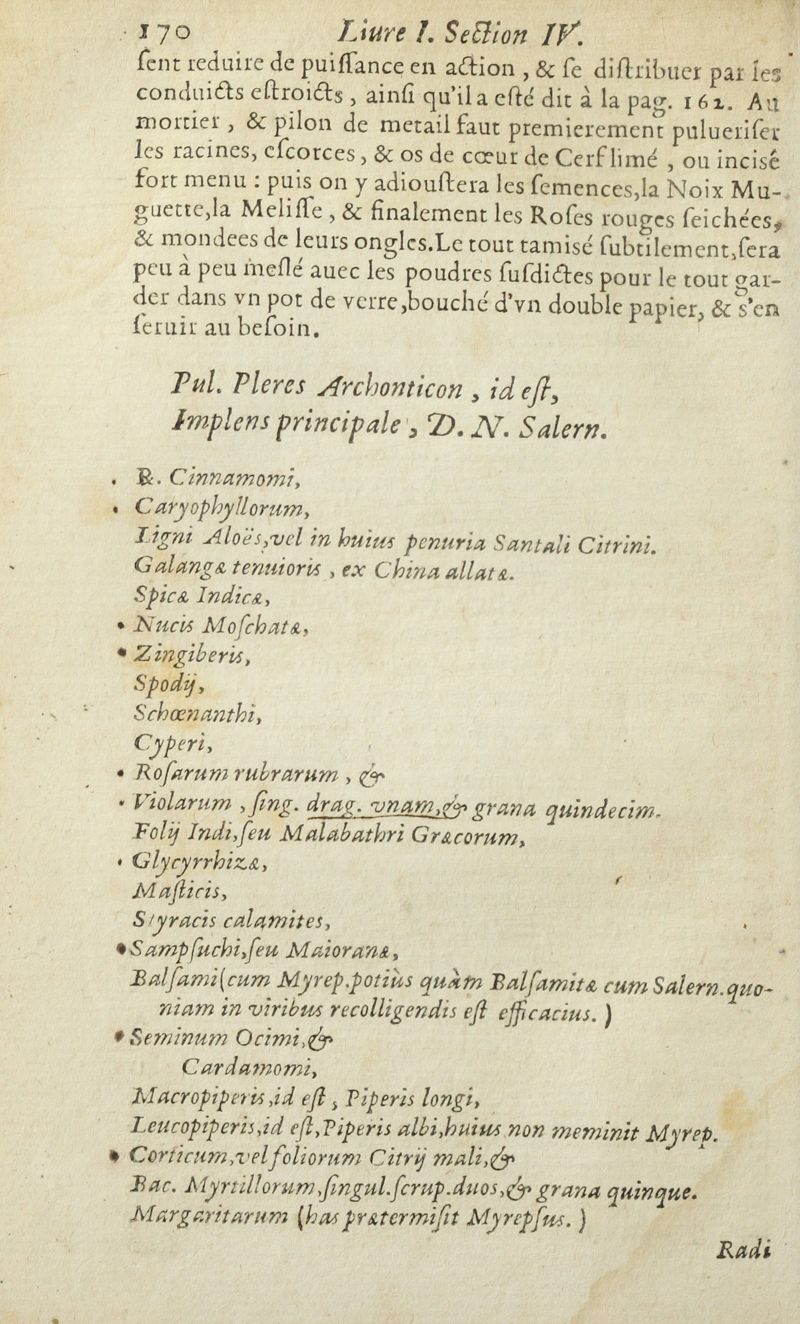 170 Liure I. Section IV.
ſent reduire de puiſſance en action , & ſe diſtribuer par les
conduicts eſtroicts , ainſi qu'il a eſté dit à la pag. 162. Au
mortier , & pilon de metail faut premierement puluerifer
les racines, eſcorces, & os de cœur de Cerf limé , ou incisé
fort menu : puis on y adiouſtera les ſemences,la Noix Mu-
guette,la Meliſſe , & finalement les Roſes rouges ſeichées,
& mondees de leurs ongles.Le tout tamisé ſubtilement,ſera
peu à peu meſlé auec les poudres ſuſdictes pour le tout gar-
der dans vn pot de verre,bouché d'vn double papier, & s'en
ſeruir au beſoin.
Pul. Pleres Archonticon , id eſt,
Implens principale , D. N. Salern.
℞. Cinnamomi,
Caryophyllorum,
Ligni Aloës,vel in huius penuria Santali Citrini.
Galangæ tenuioris , ex China allatæ.
Spicæ Indicæ,
Nucis Moſchatæ,
Zingiberis,
Spodij,
Schœnanthi,
Cyperi,
Roſarum rubrarum , &
Violarum , ſing. drag. vnam,& grana quindecim.
Folij Indi,ſeu Malabathri Græcorum,
Glycyrrhizæ,
Maſticis,
Styracis calamites,
Sampſuchi,ſeu Maioranæ,
Balſami(cum Myrep.potiùs quàm Balſamitæ cum Salern.quo-
niam in viribus recolligendis eſt efficacius. )
Seminum Ocimi,&
Cardamomi,
Macropiperis,id eſt , Piperis longi,
Leucopiperis,id eſt,Piperis albi,huius non meminit Myrep.
Corticum,vel foliorum Citrij mali,&
Bac. Myrtillorum,ſingul.ſcrup.duos,& grana quinque.
Margaritarum (has prætermiſit Myrepſus. )
Radi